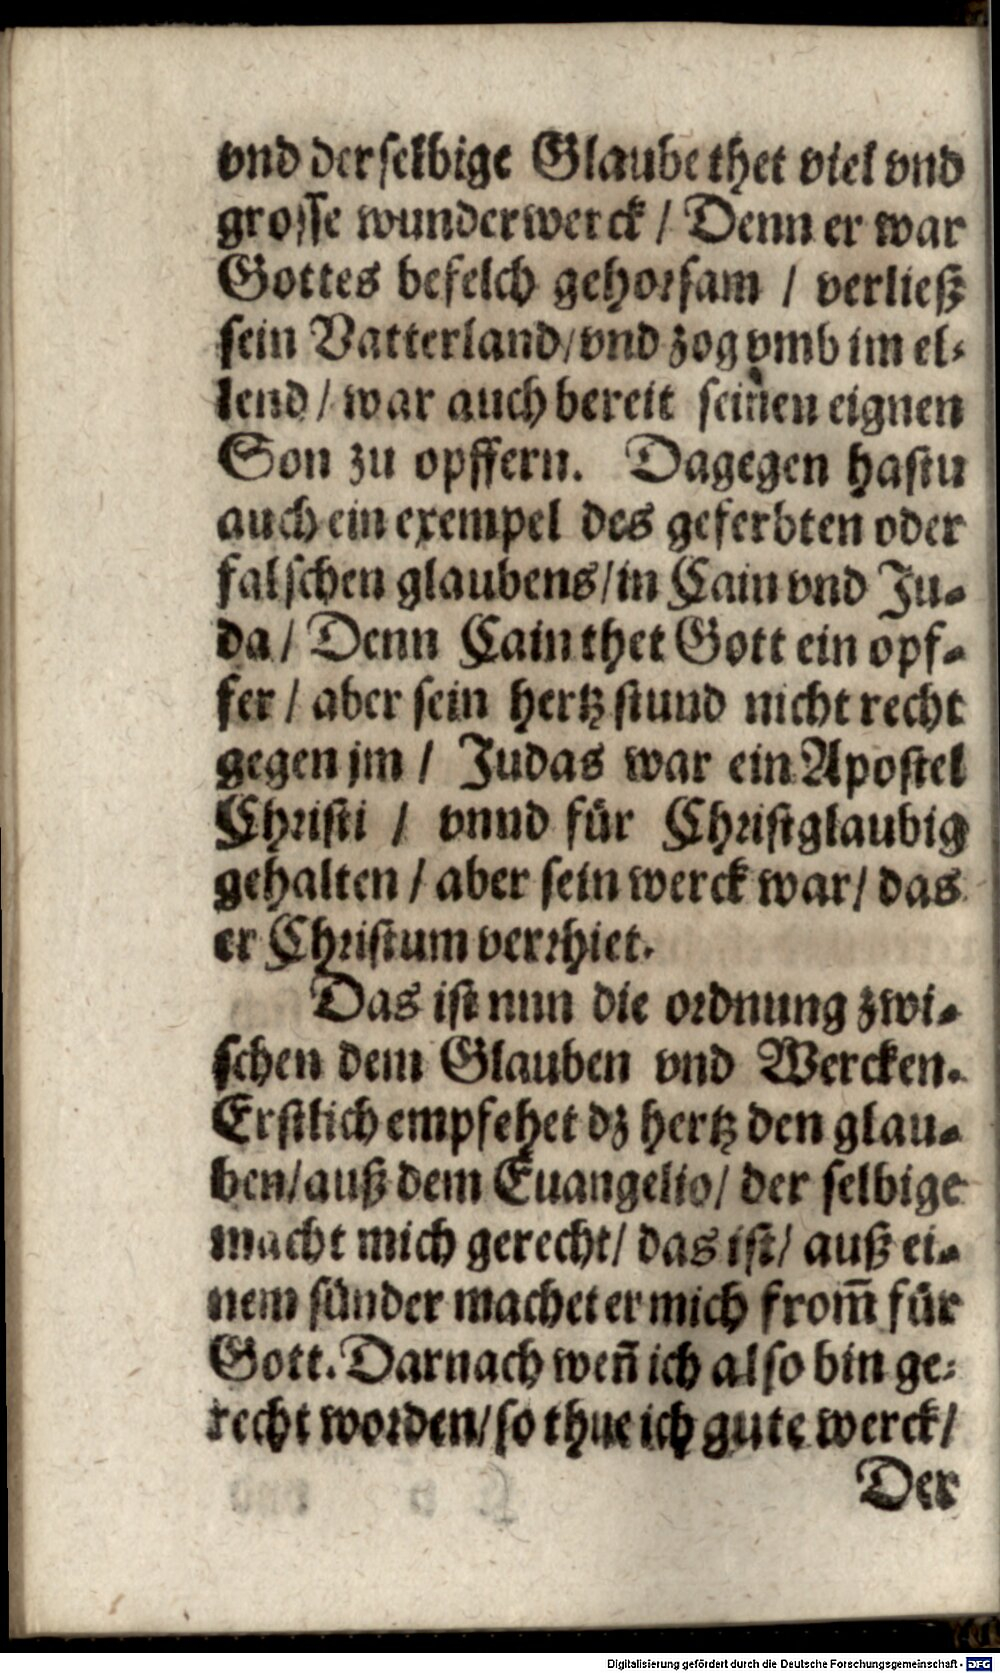 vnd derselbige Glaube thet viel vnd
grosse wunderwerck / Denn er war
Gottes befelch gehorsam / verließ
sein Vatterland/vnd zog vmb im el-
lend / war auch bereit seinen eignen
Son zu opffern. Dagegen hastu
auch ein exempel des geferbten oder
falschen glaubens/in Cain vnd Ju-
da / Denn Cain thet Gott ein opf-
fer / aber sein hertz stund nicht recht
gegen jm / Judas war ein Apostel
Christi / vnnd für Christglaubig
gehalten / aber sein werck war/ das
er Christum verrhiet.
Das ist nun die ordnung zwi-
schen dem Glauben vnd Wercken.
Erstlich empfehet dz hertz den glau-
ben/auß dem Euangelio/ der selbige
macht mich gerecht/ das ist/ auß ei-
nem sünder machet er mich from̃ für
Gott. Darnach weñ ich also bin ge-
recht worden/so thue ich gute werck/
Der
Digitalisierung gefördert durch die Deutsche Forschungsgemeinschaft - DFG